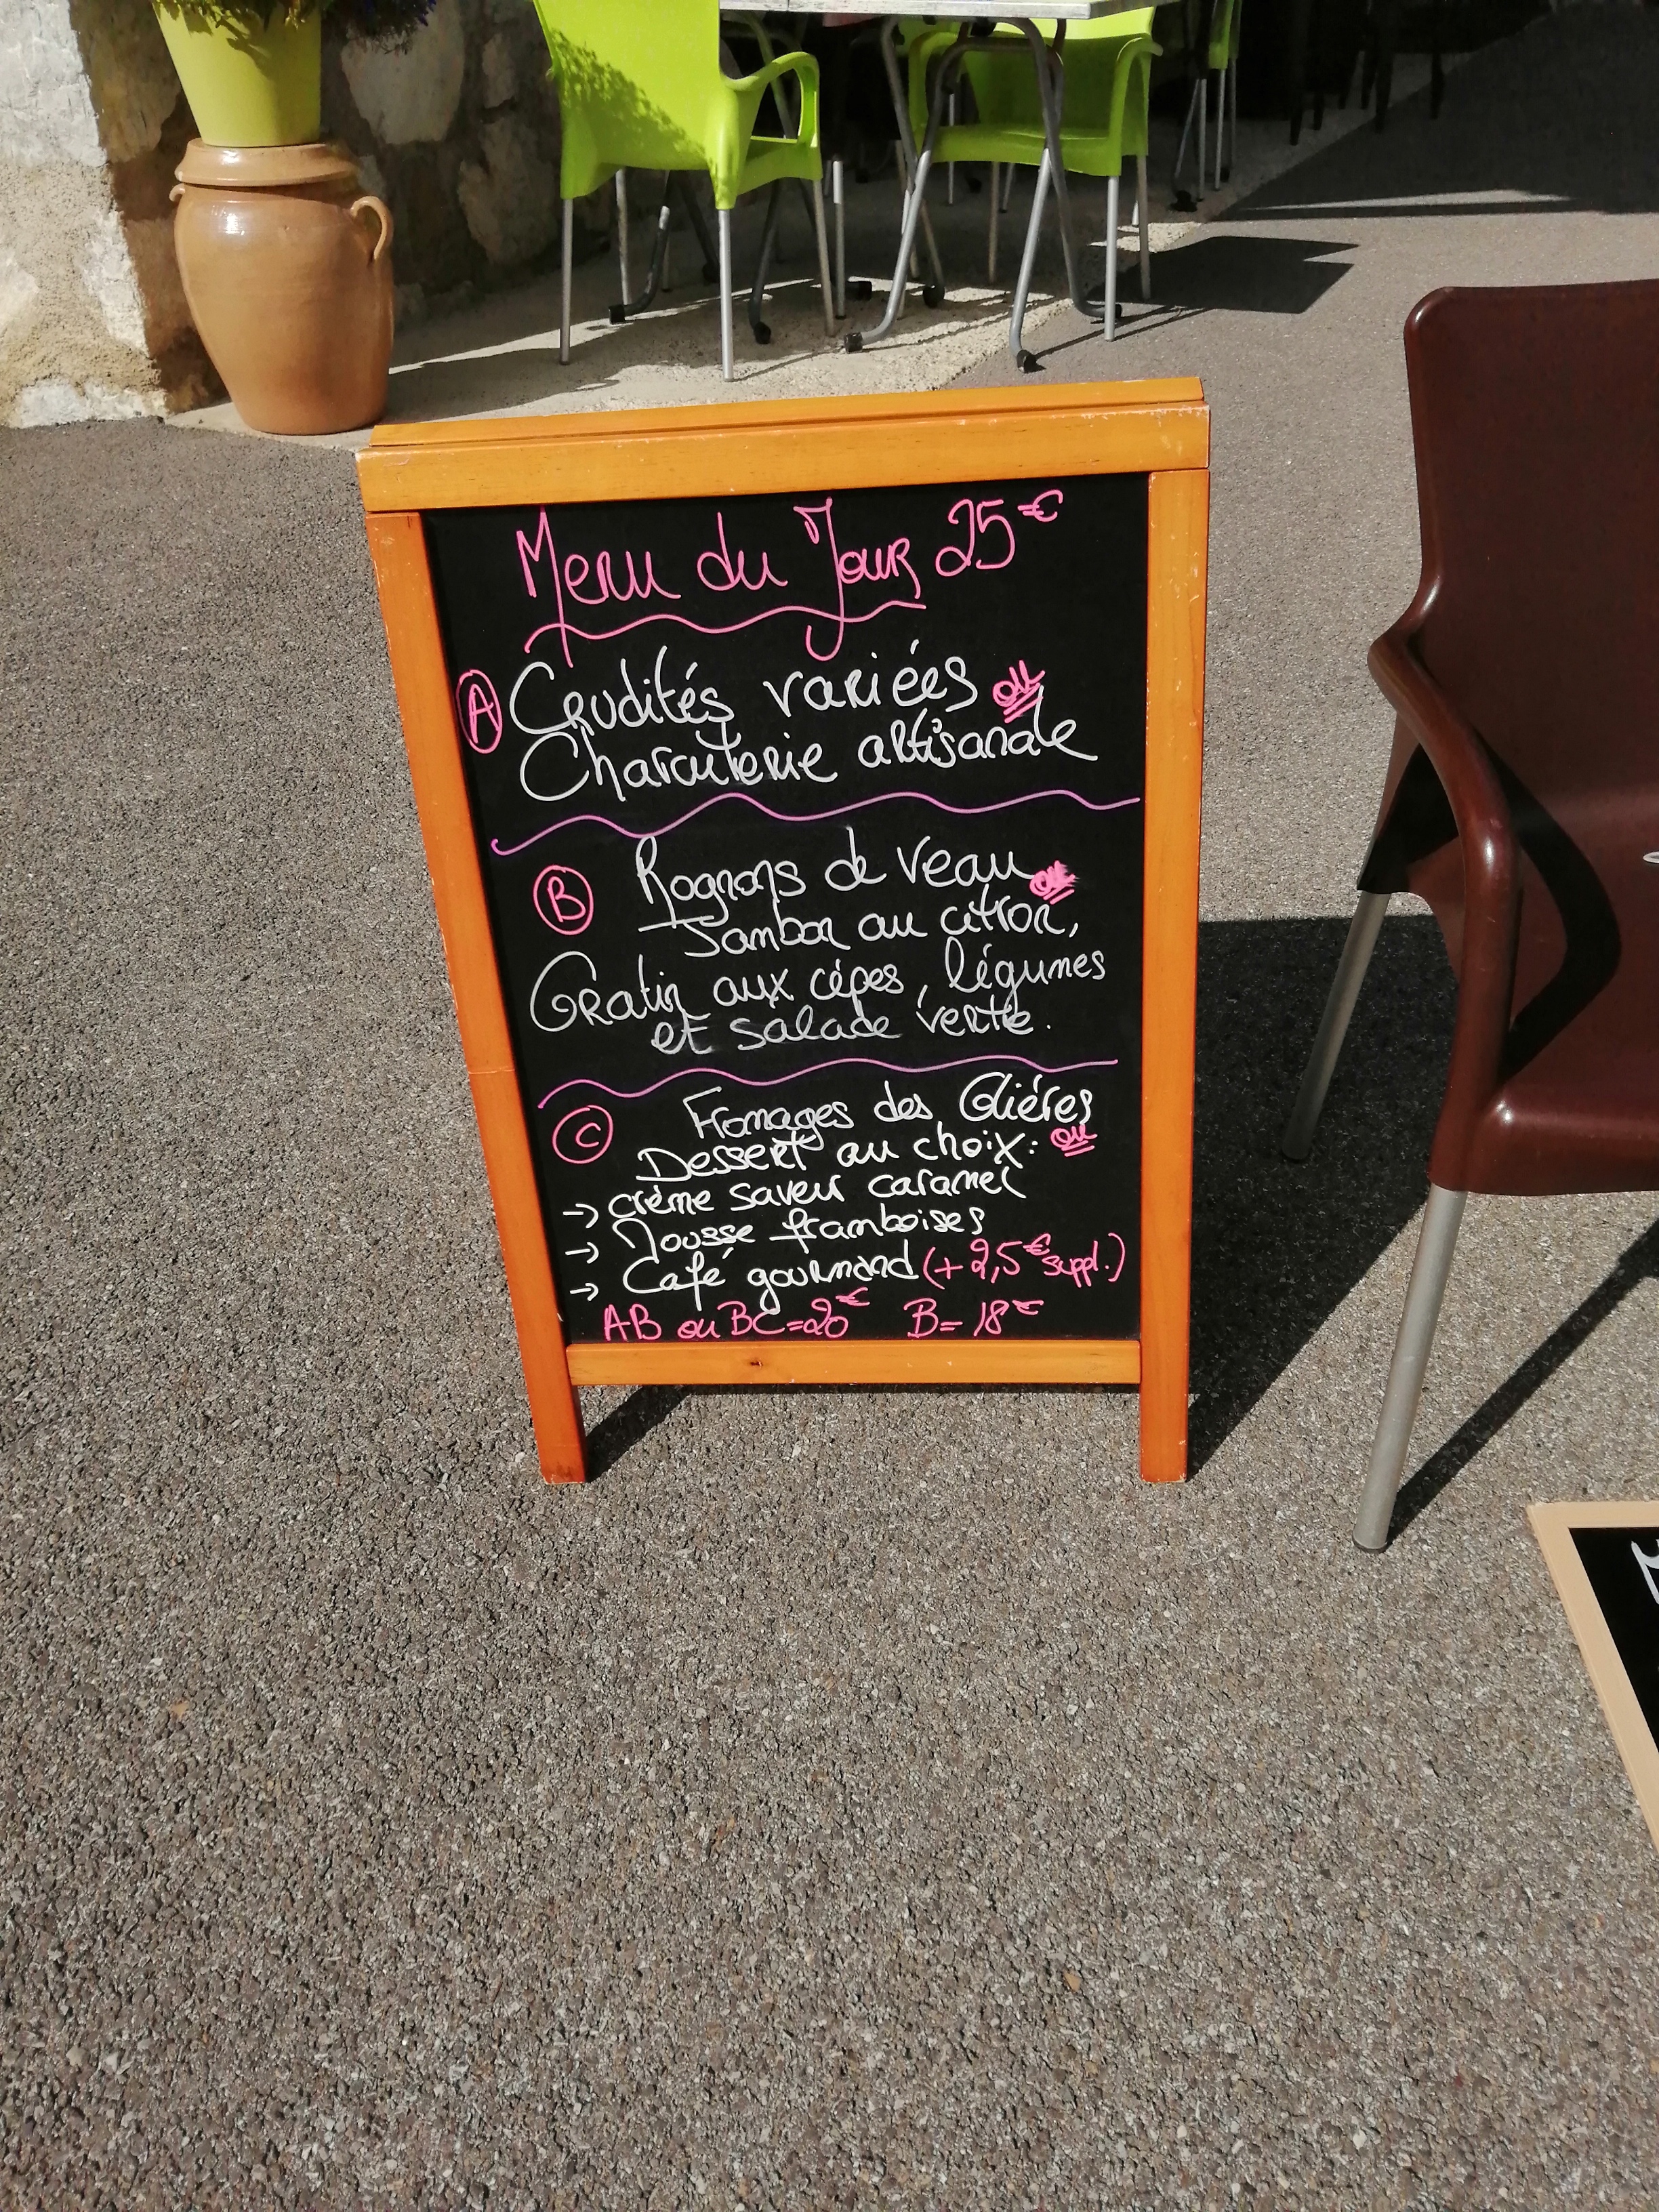 Menu du Jour 25€
A Crudités variées ou
Charcuterie artisanale
B Rognons de veau ou
Jambon au citron,
Gratin aux cépes, légumes
et salade verte.
C Fromages des Gliéres
Dessert au choix: ou
→ crème saveur caramel
→ Mousse framboises
→ Café gourmand (+2,5€ suppl.)
AB ou BC=20€ B=18€